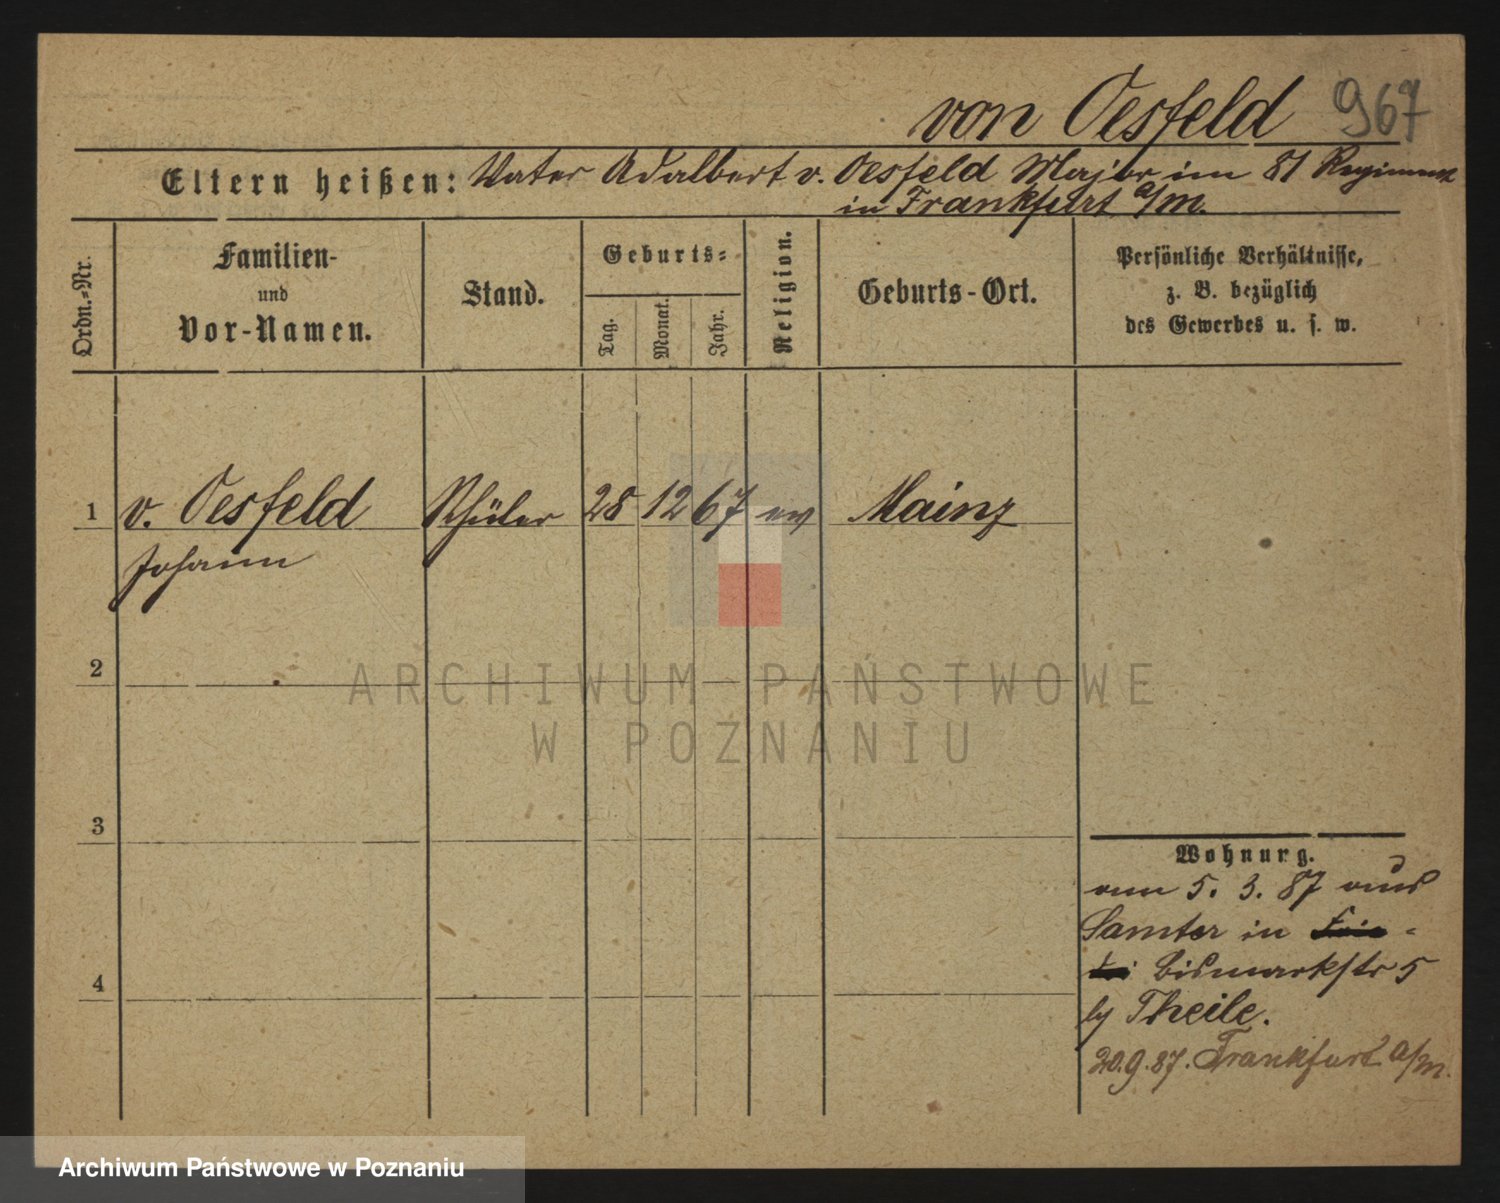 von Oesfeld 967
Eltern heißen: Vater Adalbert v. Oesfeld Major im 81 Regiment
in Frankfurt a/M.
Ordn.-Nr.
Familien-
und
Vor-Namen.
Stand.
Geburts-
Tag.
Monat.
Jahr.
Religion.
Geburts-Ort.
Persönliche Verhältnisse,
z. B. bezüglich
des Gewerbes u. s. w.
1 v. Oesfeld Schüler 28 12 67 ev Mainz
Johann
2
ARCHIWUM PAŃSTWOWE
W POZNANIU
3
Wohnung.
am 5. 3. 87 aus
Samter in
Bismarkstr 5
by Theile.
4
20.9.87. Frankfurt a/M.
Archiwum Państwowe w Poznaniu